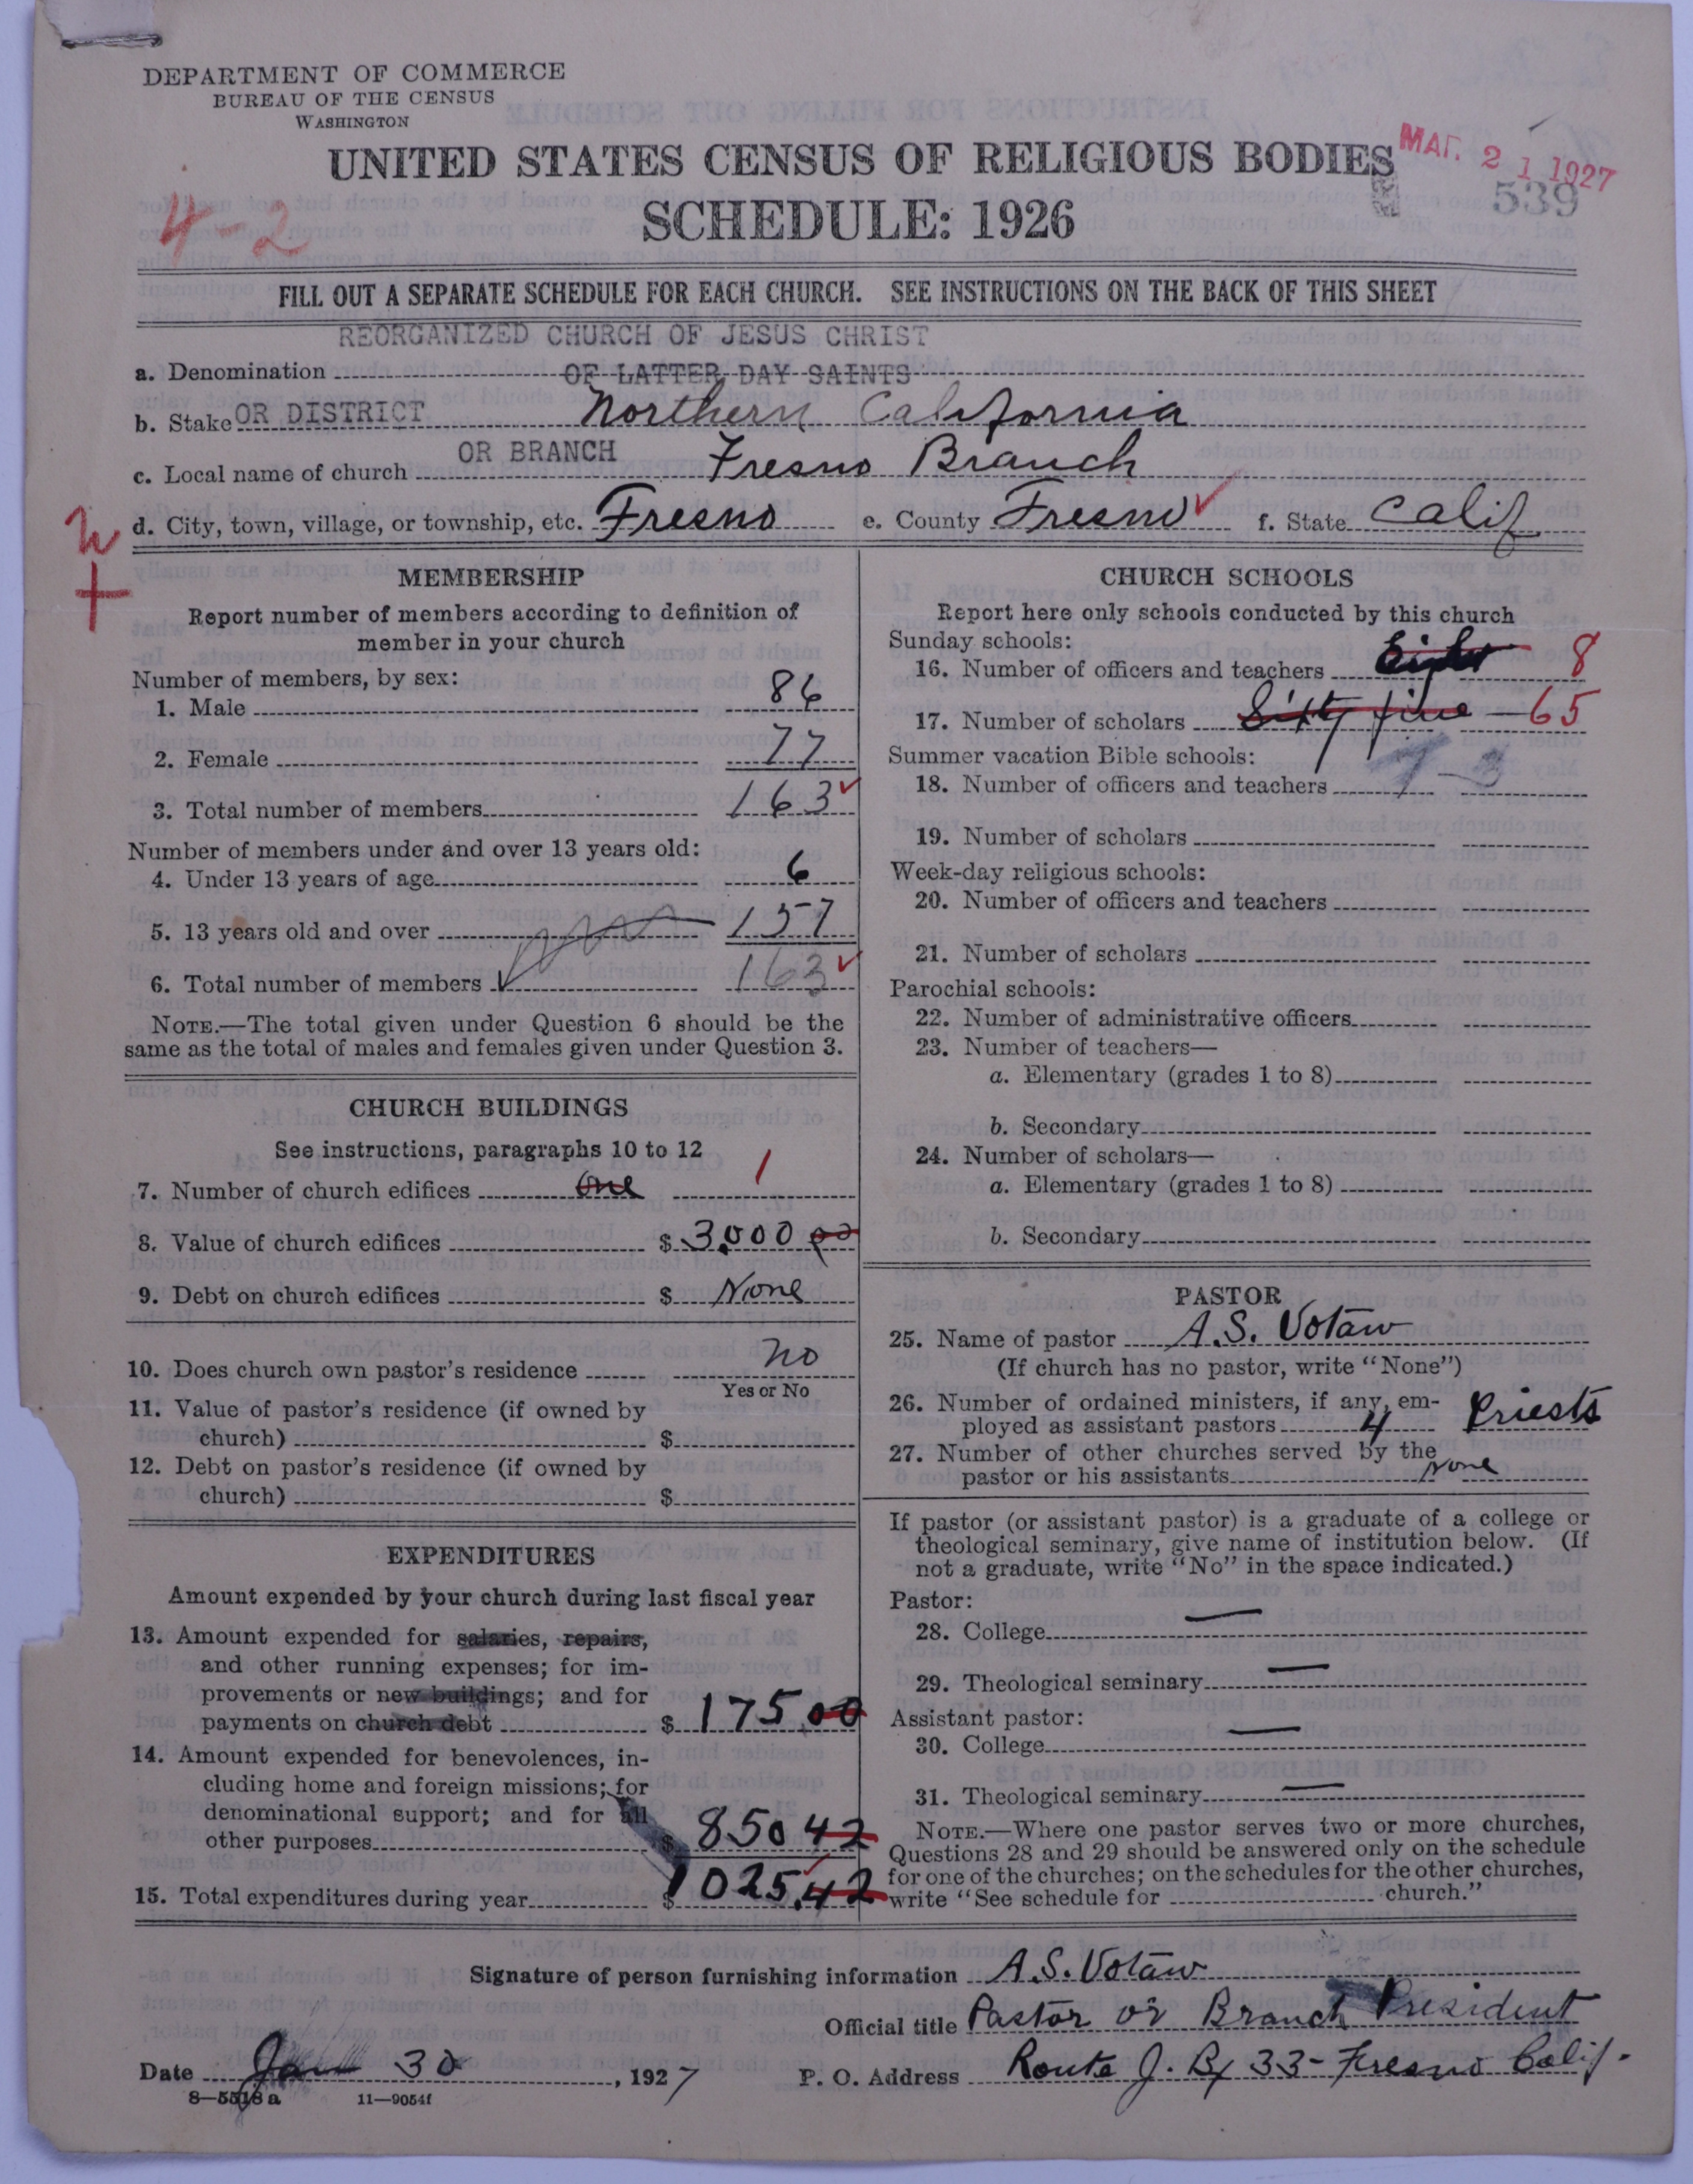 DEPARTMENT OF COMMERCE
BUREAU OF THE CENSUS
WASHINGTON
UNITED STATES CENSUS OF RELIGIOUS BODIES
MAR. 21 1927
539
4-2
SCHEDULE: 1926
FILL OUT A SEPARATE SCHEDULE FOR EACH CHURCH. SEE INSTRUCTIONS ON THE BACK OF THIS SHEET
REORGANIZED CHURCH OF JESUS CHRIST
a. Denomination OF LATTER DAY SAINTS
b. Stake OR DISTRICT Northern California
OR BRANCH
c. Local name of church Fresno Branch
d. City, town, village, or township, etc. Fresno e. County Fresno f. State Calif
MEMBERSHIP
Report number of members according to definition of
member in your church
Number of members, by sex:
1. Male 86
2. Female 77
3. Total number of members 163
Number of members under and over 13 years old:
4. Under 13 years of age 6
5. 13 years old and over 157
6. Total number of members 163
NOTE.—The total given under Question 6 should be the
same as the total of males and females given under Question 3.
CHURCH BUILDINGS
See instructions, paragraphs 10 to 12
7. Number of church edifices One 1
8. Value of church edifices $ 3,000 00
9. Debt on church edifices $ None
10. Does church own pastor's residence no
Yes or No
11. Value of pastor's residence (if owned by
church) $
12. Debt on pastor's residence (if owned by
church) $
EXPENDITURES
Amount expended by your church during last fiscal year
13. Amount expended for salaries, repairs,
and other running expenses; for im-
provements or new buildings; and for
payments on church debt $ 175.00
14. Amount expended for benevolences, in-
cluding home and foreign missions; for
denominational support; and for all
other purposes $ 850 42
15. Total expenditures during year $ 1025.42
CHURCH SCHOOLS
Report here only schools conducted by this church
Sunday schools:
16. Number of officers and teachers Eight 8
17. Number of scholars Sixty five 65
Summer vacation Bible schools:
7-3
18. Number of officers and teachers
19. Number of scholars
Week-day religious schools:
20. Number of officers and teachers
21. Number of scholars
Parochial schools:
22. Number of administrative officers
23. Number of teachers—
a. Elementary (grades 1 to 8)
b. Secondary
24. Number of scholars—
a. Elementary (grades 1 to 8)
b. Secondary
PASTOR
25. Name of pastor A.S. Votaw
(If church has no pastor, write "None")
26. Number of ordained ministers, if any, em-
ployed as assistant pastors 4 Priests
27. Number of other churches served by the
pastor or his assistants None
If pastor (or assistant pastor) is a graduate of a college or
theological seminary, give name of institution below. (If
not a graduate, write "No" in the space indicated.)
Pastor:
28. College —
29. Theological seminary —
Assistant pastor:
30. College —
31. Theological seminary —
NOTE.—Where one pastor serves two or more churches,
Questions 28 and 29 should be answered only on the schedule
for one of the churches; on the schedules for the other churches,
write "See schedule for church."
Signature of person furnishing information A.S. Votaw
Official title Pastor or Branch President
Date Jan 30, 1927 P. O. Address Route J. Bx 33 - Fresno Calif.
8—5518 a 11—9054f